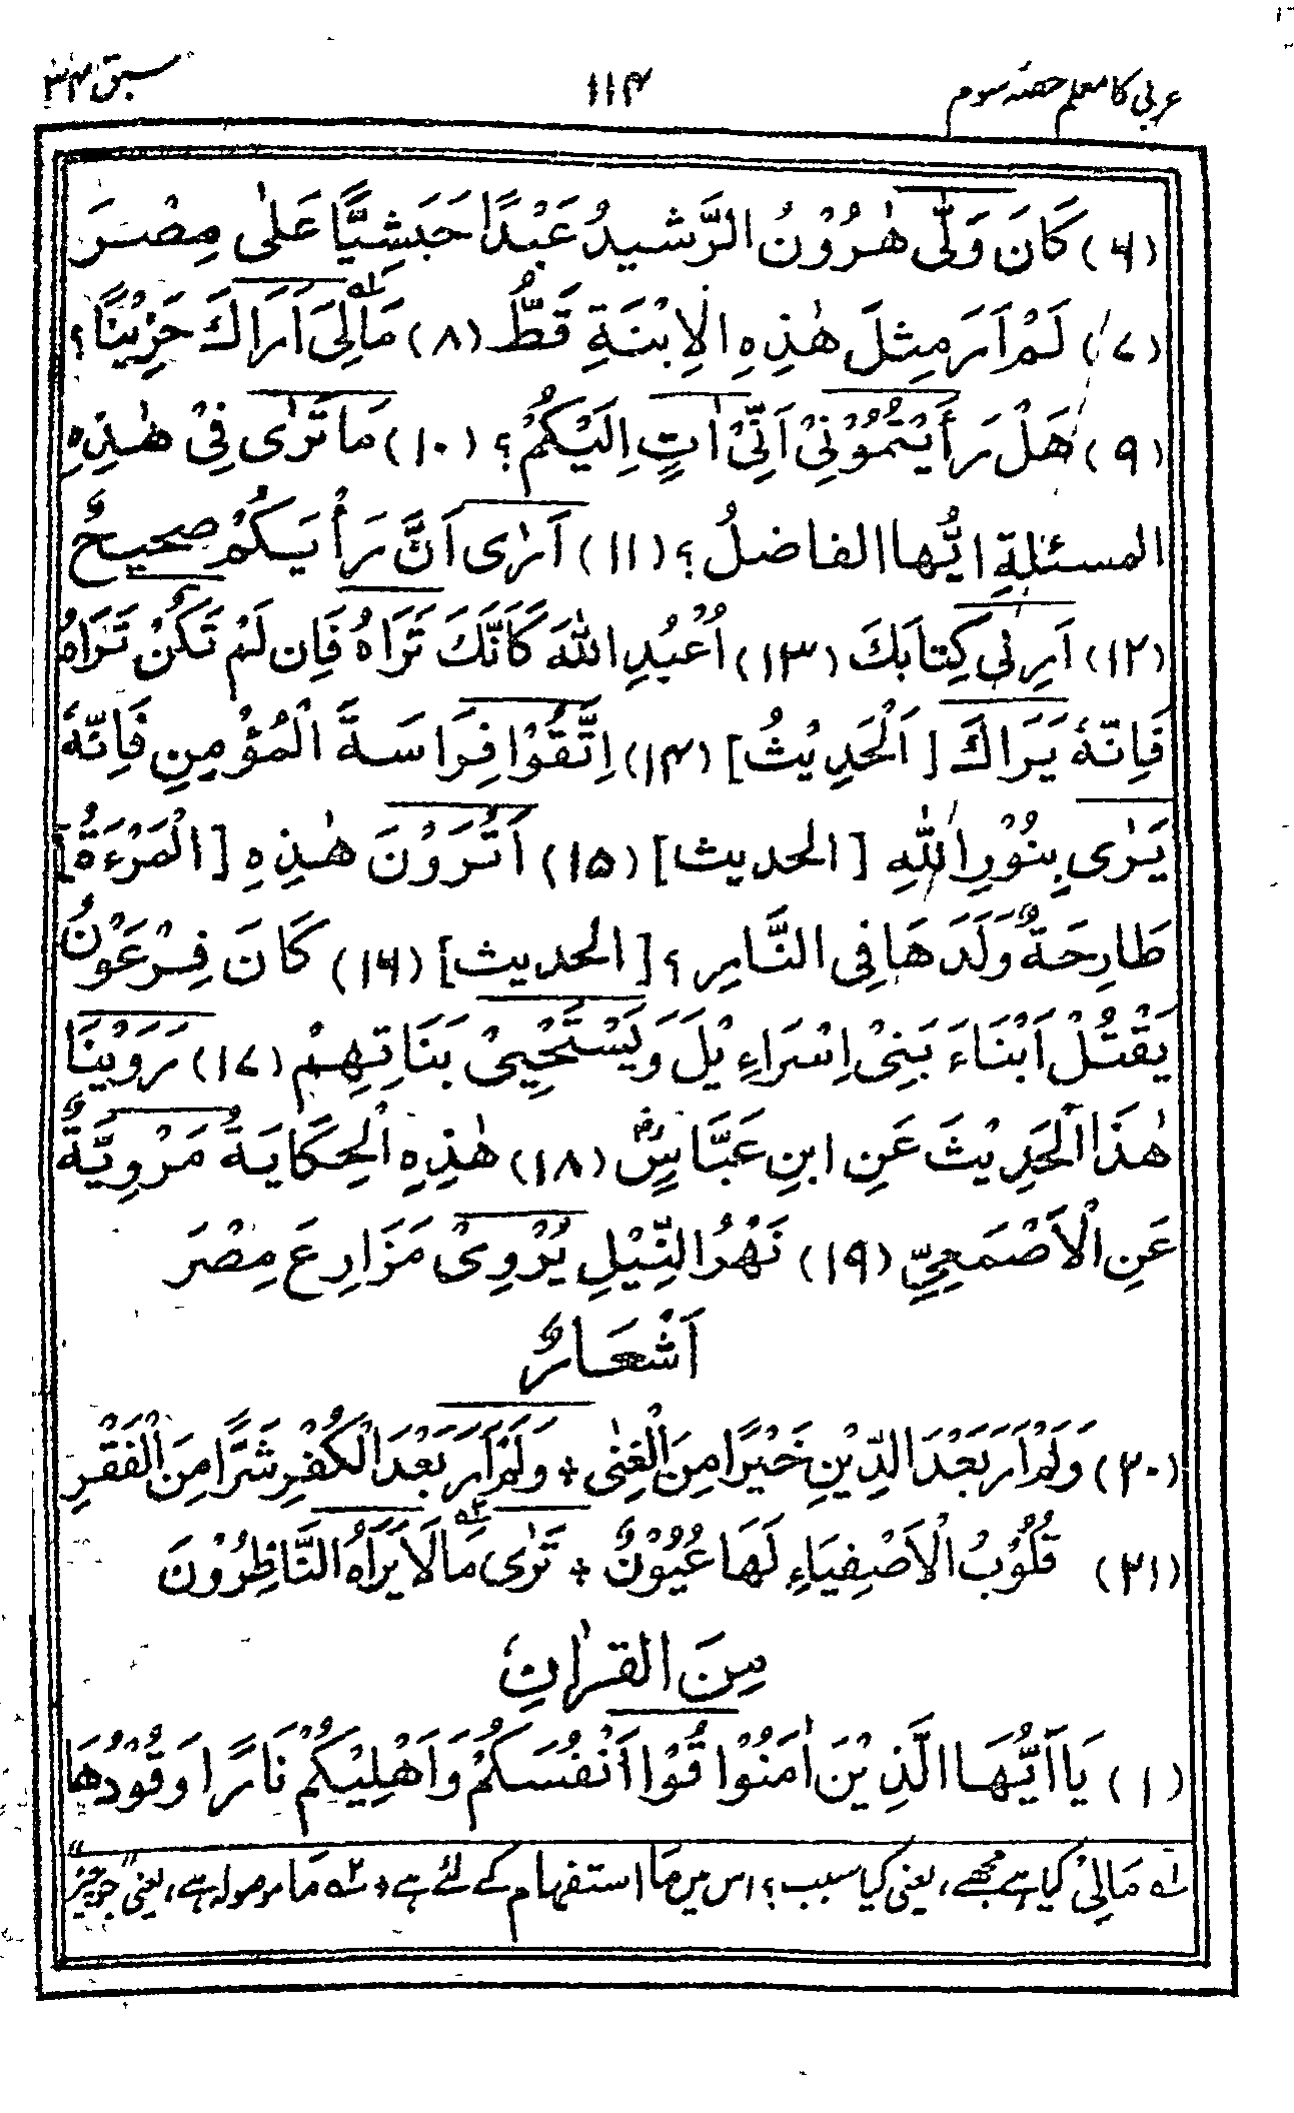 عربی کا معلم حصہ سوم ۱۱۴ سبق ۳۴
(۶) كَانَ وَلّٰى هٰرُوْنُ الرَّشِيدُ عَبْدًا حَبَشِيًّا عَلٰى مِصْرَ
(۷) لَمْ اَرَ مِثلَ هٰذِهِ الْاِبْنَةِ قَطُّ (۸) مَالِيَ اَرَاكَ حَزِيْنًا؟
(۹) هَلْ رَأَيْتُمُوْنِيْ اَنِّيْ اٰتٍ اِلَيْكُمْ؟ (۱۰) مَا تَرٰى فِيْ هٰذِهِ
المسئلةِ ايُّها الفاضلُ؟ (۱۱) اَرٰى اَنَّ رَأْيَكُمْ صحيحٌ
(۱۲) اَرِنِي كِتابَكَ (۱۳) اُعْبُدِ اللهَ كَاَنَّكَ تَرَاهُ فَاِن لَمْ تَكُنْ تَرَاهُ
فَاِنَّهٗ يَرَاكَ [اَلْحَدِيْثُ] (۱۴) اِتَّقُوْا فِرَاسَةَ الْمُؤْمِنِ فَاِنَّهٗ
يَرٰى بِنُوْرِ اللهِ [الحديث] (۱۵) اَتُرَوْنَ هٰذِهِ [الْمَرْءَةُ]
طَارِحَةٌ وَلَدَهَا فِى النَّارِ؟ [الحديث] (۱۶) كَانَ فِرْعَوْنُ
يَقْتُلُ اَبْنَاءَ بَنِيْ اِسْرَاءِيْلَ وَيَسْتَحْيِيْ بَنَاتِهِمْ (۱۷) رَوَيْنَا
هٰذَا الْحَدِيْثَ عَنِ ابنِ عَبَّاسٍؓ (۱۸) هٰذِهِ الْحِكَايَةُ مَرْوِيَّةٌ
عَنِ الْاَصْمَعِيِّ (۱۹) نَهْرُ النِّيْلِ يُرْوِيْ مَزَارِعَ مِصْرَ
اَشْعَارٌ
(۲۰) وَلَمْ اَرَ بَعْدَ الدِّيْنِ خَيْرًا مِنَ الْغِنٰى * وَلَمْ اَرَ بَعْدَ الْكُفْرِ شَرًّا مِنَ الْفَقْرِ
(۲۱) قُلُوْبُ الْاَصْفِيَاءِ لَهَا عُيُوْنٌ * تَرٰى مَا ۲ لَا يَرَاهُ النَّاظِرُوْنَ
مِنَ القراٰنِ
(۱) يَا اَيُّهَا الَّذِيْنَ اٰمَنُوْا قُوْا اَنْفُسَكُمْ وَاَهْلِيْكُمْ نَارًا وَقُوْدُهَا
۱ مَالِیْ کیا ہے مجھے، یعنی کیا سبب؟ اس میں مَا استفہام کے لئے ہے * ۲ مَا موصولہ ہے، یعنی "جو چیز"